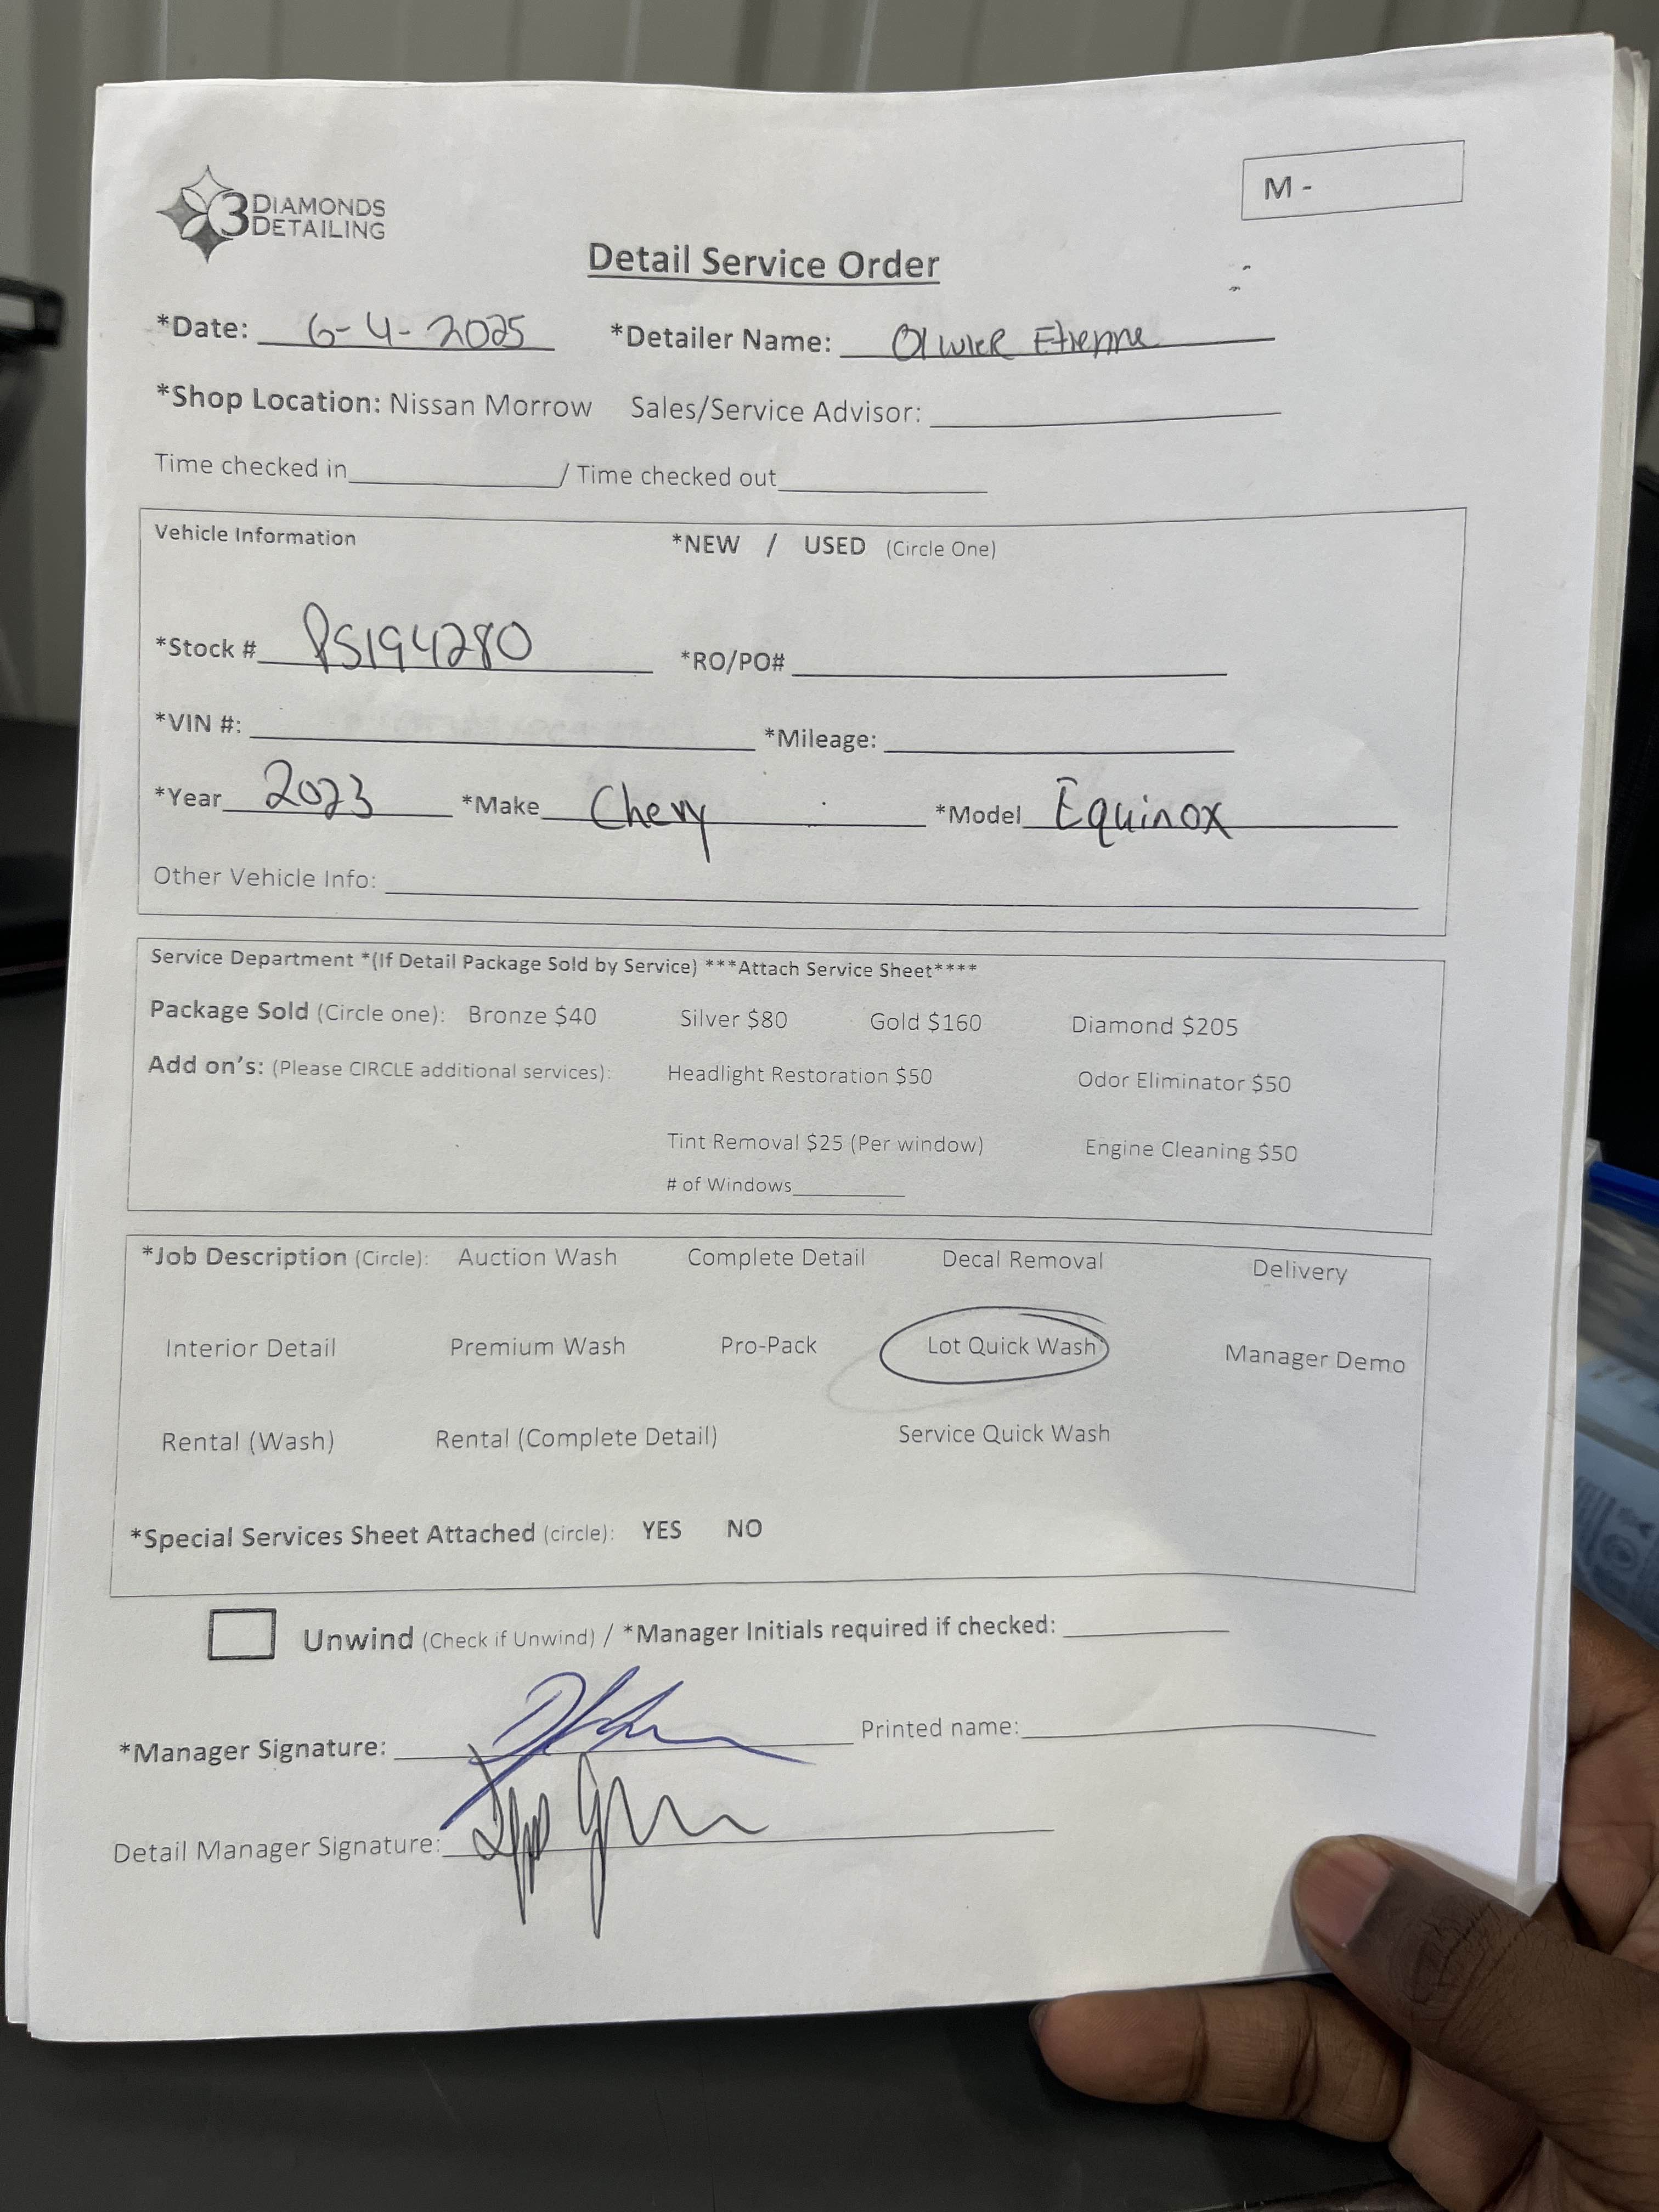 3 DIAMONDS
DETAILING
M -
Detail Service Order
*Date: 6-4-2025 *Detailer Name: Olivier Etienne
*Shop Location: Nissan Morrow Sales/Service Advisor:
Time checked in / Time checked out
Vehicle Information *NEW / USED (Circle One)
*Stock # PS194280 *RO/PO#
*VIN #: *Mileage:
*Year 2023 *Make Chevy *Model Equinox
Other Vehicle Info:
Service Department *(If Detail Package Sold by Service) ***Attach Service Sheet****
Package Sold (Circle one): Bronze $40 Silver $80 Gold $160 Diamond $205
Add on's: (Please CIRCLE additional services): Headlight Restoration $50 Odor Eliminator $50
Tint Removal $25 (Per window) Engine Cleaning $50
# of Windows
*Job Description (Circle): Auction Wash Complete Detail Decal Removal Delivery
Interior Detail Premium Wash Pro-Pack Lot Quick Wash Manager Demo
Rental (Wash) Rental (Complete Detail) Service Quick Wash
*Special Services Sheet Attached (circle): YES NO
Unwind (Check if Unwind) / *Manager Initials required if checked:
*Manager Signature: Printed name:
Detail Manager Signature: